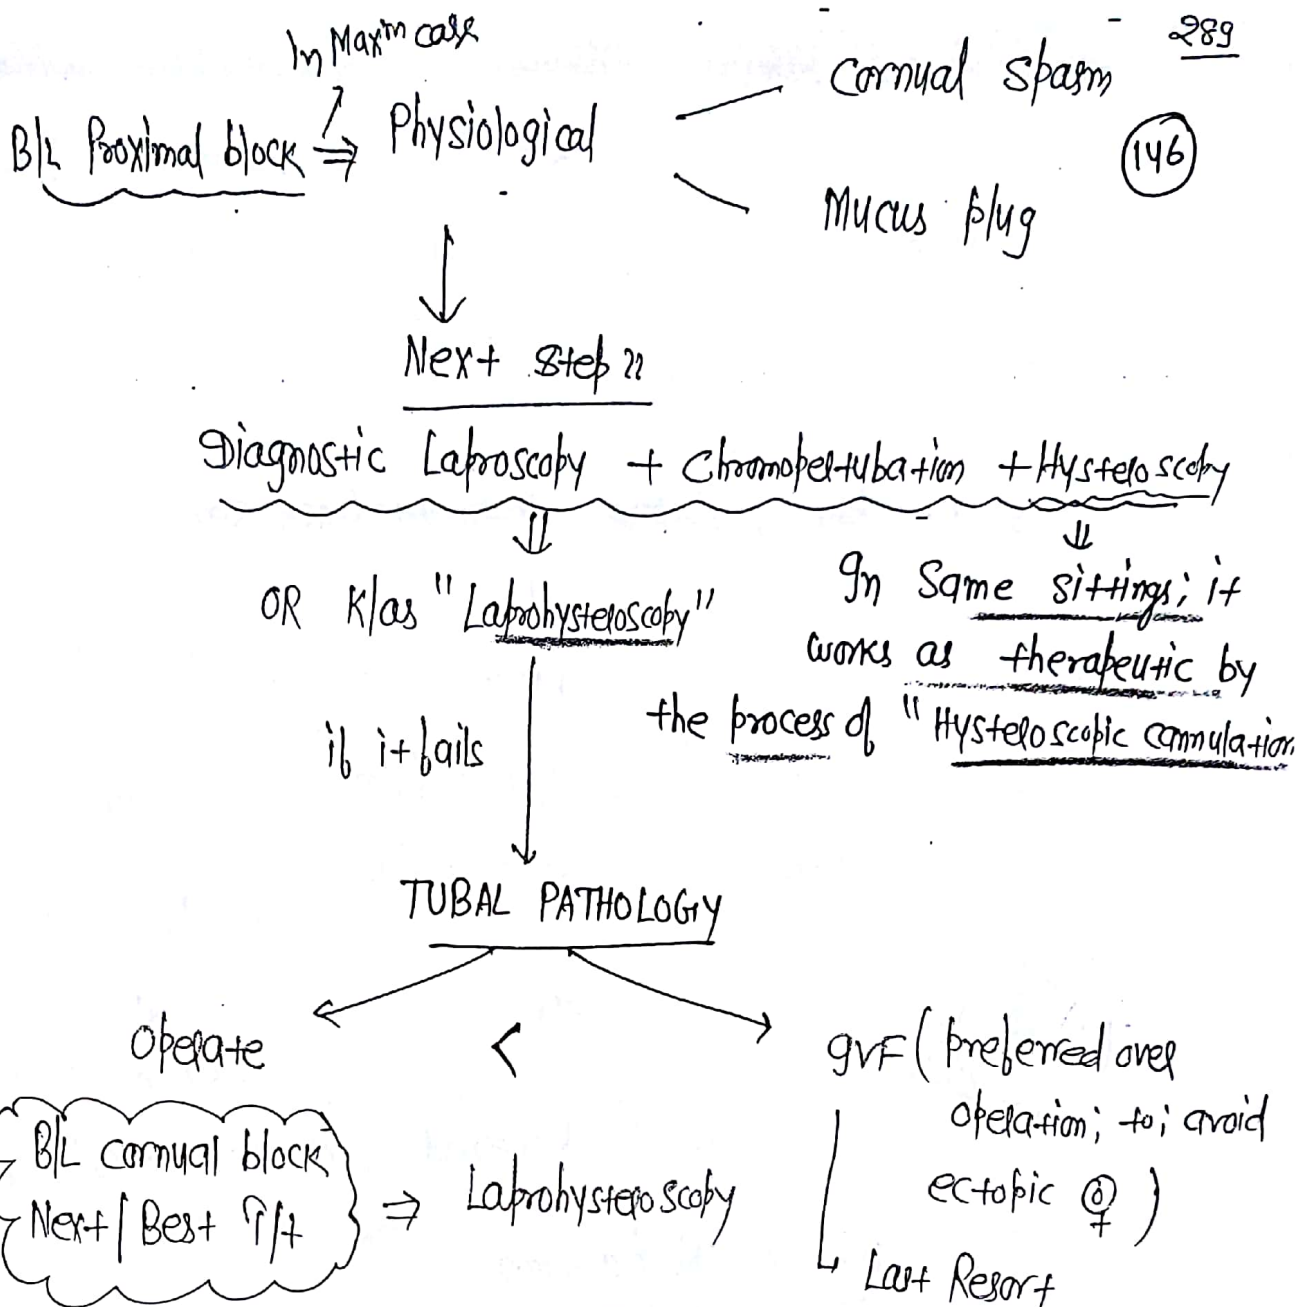 289
In Maxm case
Cornual Spasm
B/L Proximal block ⇒ Physiological
146
Mucus plug
Next Step ??
Diagnostic Laproscopy + Chromopertubation + Hysteroscopy
OR K/as "Laprohysteroscopy"
In Same sittings; it
works as therapeutic by
the process of "Hysteroscopic cannulation
if it fails
TUBAL PATHOLOGY
Operate
<
IVF (preferred over
operation; to; avoid
ectopic ♀)
Last Resort
B/L cornual block
Next / Best T/t
⇒ Laprohysteroscopy